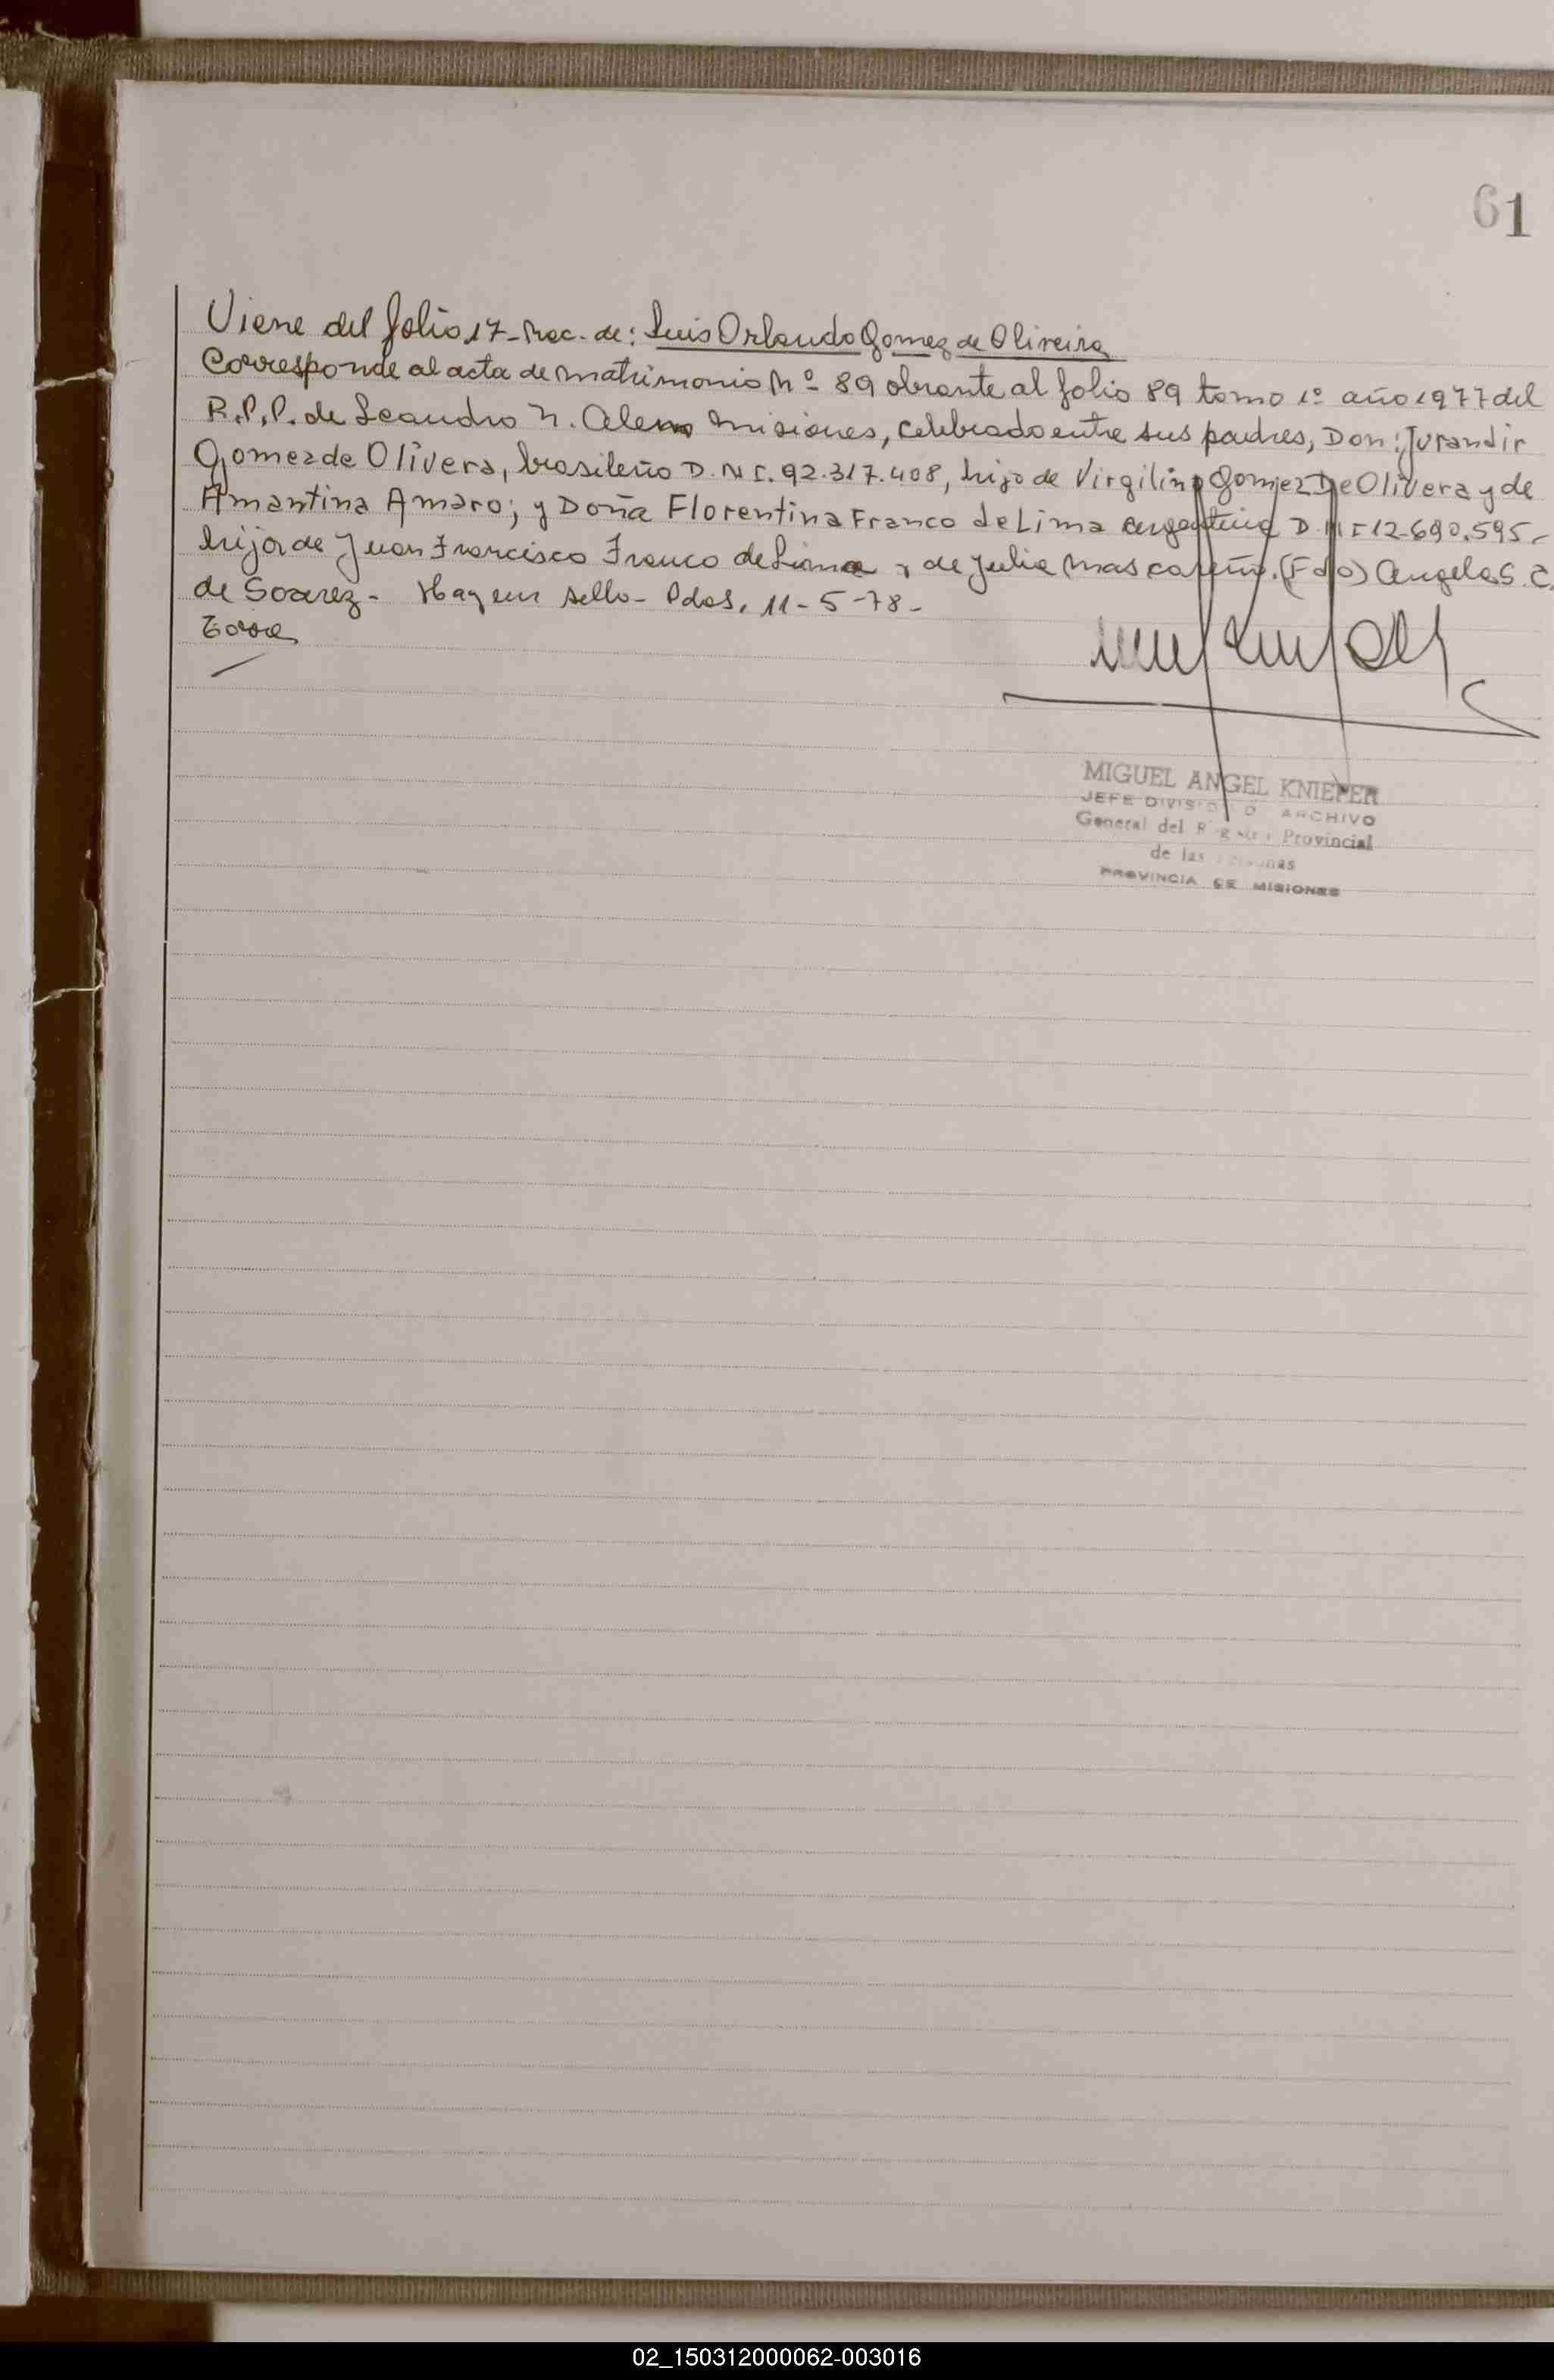 61
Viene del folio 17- Nac. de: Luis Orlando Gomez de Oliveira
Corresponde al acta de matrimonio Nº 89 obrante al folio 89 tomo 1º año 1977 del
R.P.P. de Leandro N. Alem Misiones, celebrado entre sus padres, Don: Jurandir
Gomez de Olivera, brasileño D.N.I. 92.317.408, hijo de Virgilino Gomez De Olivera y de
Amantina Amaro; y Doña Florentina Franco de Lima argentina D.N.I 12.690.595-
hija de Juan Francisco Franco de Lima y de Julia Mascareño. (Fdo) Angela S. C.
de Soarez- Hay un sello- Pdas, 11-5-78-
MIGUEL ANGEL KNIEPER
JEFE DIVISION ARCHIVO
General del Registro Provincial
de las Personas
PROVINCIA DE MISIONES
02_150312000062-003016